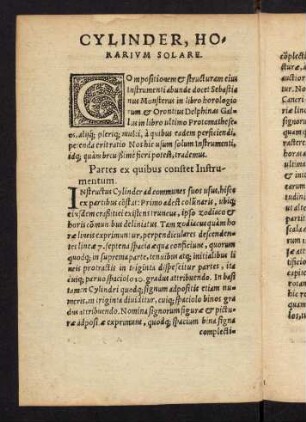 CYLINDER, HO-
RARIVM SOLARE.
Compositionem & structuram eius
Instrumenti abunde docet Sebastia
nus Monsterus in libro horologio
rum & Orontius Delphinas Gal
lus in libro ultimo Protomathese
os, alijq; pleriq; multi, à quibus eadem perficiendi, pe-
tenda erit ratio Nos hic usum solum Instrumenti,
idq; quàm breuißime fieri potest, trademus.
Partes ex quibus constet Instru-
mentum.
INstructus Cylinder ad communes suos usus, hisce
partibus cõstat: Primo adest colũnaris, ubiq;
eiusdem craßitiei existens truncus, ipso zodiaco &
horis cõmunibus delineatus. Tam zodiacus quàm ho
ræ lineis exprimuntur, perpendiculares descenden-
tes lineæ 7. septena spacia æqua conficiunt, quorum
quodq; in suprema parte, ten uibus atq; initialibus li
neis protractis in triginta dispescitur partes, ita
cuiq; paruo spaciolo 10. gradus attribuendo. In basi
tamen Cylindri quodq; signum adpositis etiam nu
meris, in triginta diuiditur, cuiq; spaciolo binos gra
dus attribuendo. Nomina signorum figuræ & pic-
turæ adpositæ exprimunt, quodq; spacium bina signa
complecti-